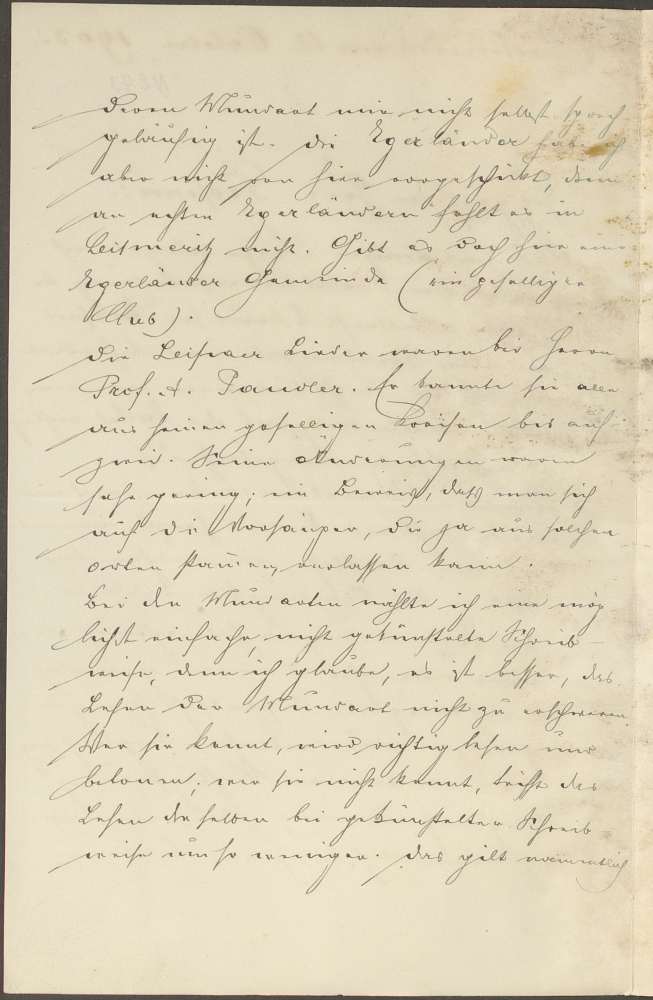 deren Mundart mir nicht selbst sprach-
geläufig ist. Die Egerländer habe ich
aber nicht von hier vorgeschickt, denn
an echten Egerländern fehlt es in
Leitmeritz nicht. Gibt es doch hier eine
Egerländer Gemeinde (ein geselliger
Club).
Die Leipaer Lieder waren bei Herrn
Prof. A. Paudler. Er kannte sie alle
aus seinen geselligen Kreisen bis auf
zwei. Seine Änderungen waren
sehr gering; ein Beweis, daß man sich
auf die Vorsänger, die ja aus solchen
Orten stammen, verlassen kann.
Bei den Mundarten wählte ich eine mög
lichst einfache, nicht gekünstelte Schreib-
weise, denn ich glaube, es ist besser, das
Lesen der Mundart nicht zu erschweren.
Wer sie kennt, wird richtig lesen und
betonen; wer sie nicht kennt, trifft das
Lesen derselben bei gekünstelter Schreib-
weise um so weniger. Das gilt namentlich